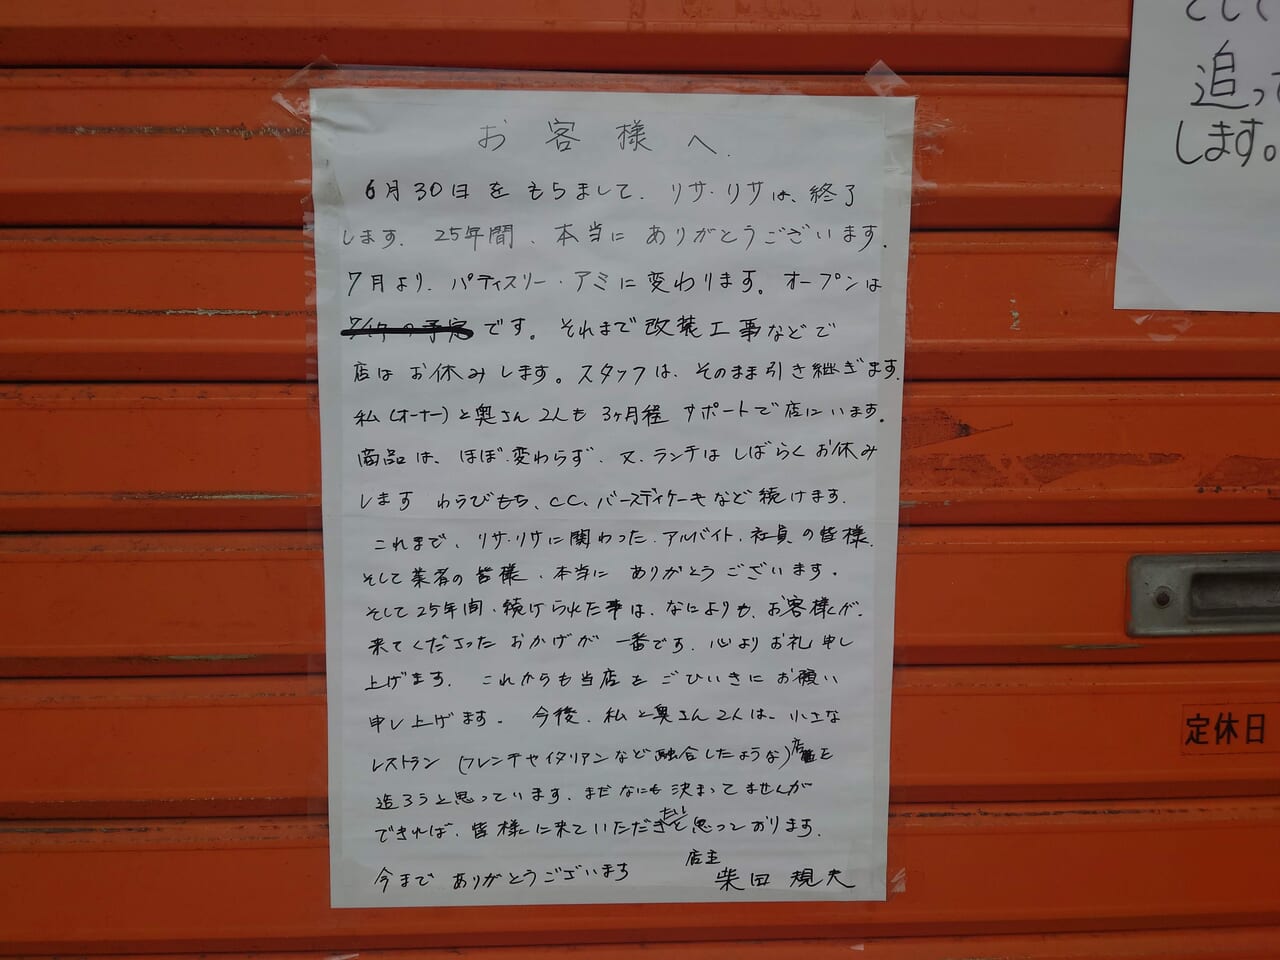 お客様へ.
6月30日をもちまして、リサ・リサは、終了
します. 25年間、本当にありがとうございます.
7月より、パティスリー・アミに変わります。オープンは
です。それまで改装工事などで
店はお休みします。スタッフは、そのまま引き継ぎます.
私(オーナー)と奥さん2人も3ヶ月程サポートで店にいます.
商品は、ほぼ変わらず、又、ランチはしばらくお休み
します わらびもち、CC、バースディケーキなど続けます.
これまで、リサ・リサに関わった、アルバイト、社員の皆様、
そして業者の皆様、本当にありがとうございます.
そして25年間、続けられた事は、なによりも、お客様が、
来てくださったおかげが一番です. 心よりお礼申し
上げます. これからも当店をごひいきにお願い
申し上げます. 今後、私と奥さん2人は、小さな
レストラン(フレンチやイタリアンなど融合したような)店を
造ろうと思っています. まだなにも決まってませんが
できれば、皆様に来ていただきたいと思っております.
今までありがとうございます
店主
柴田 規夫
追って
します。
定休日